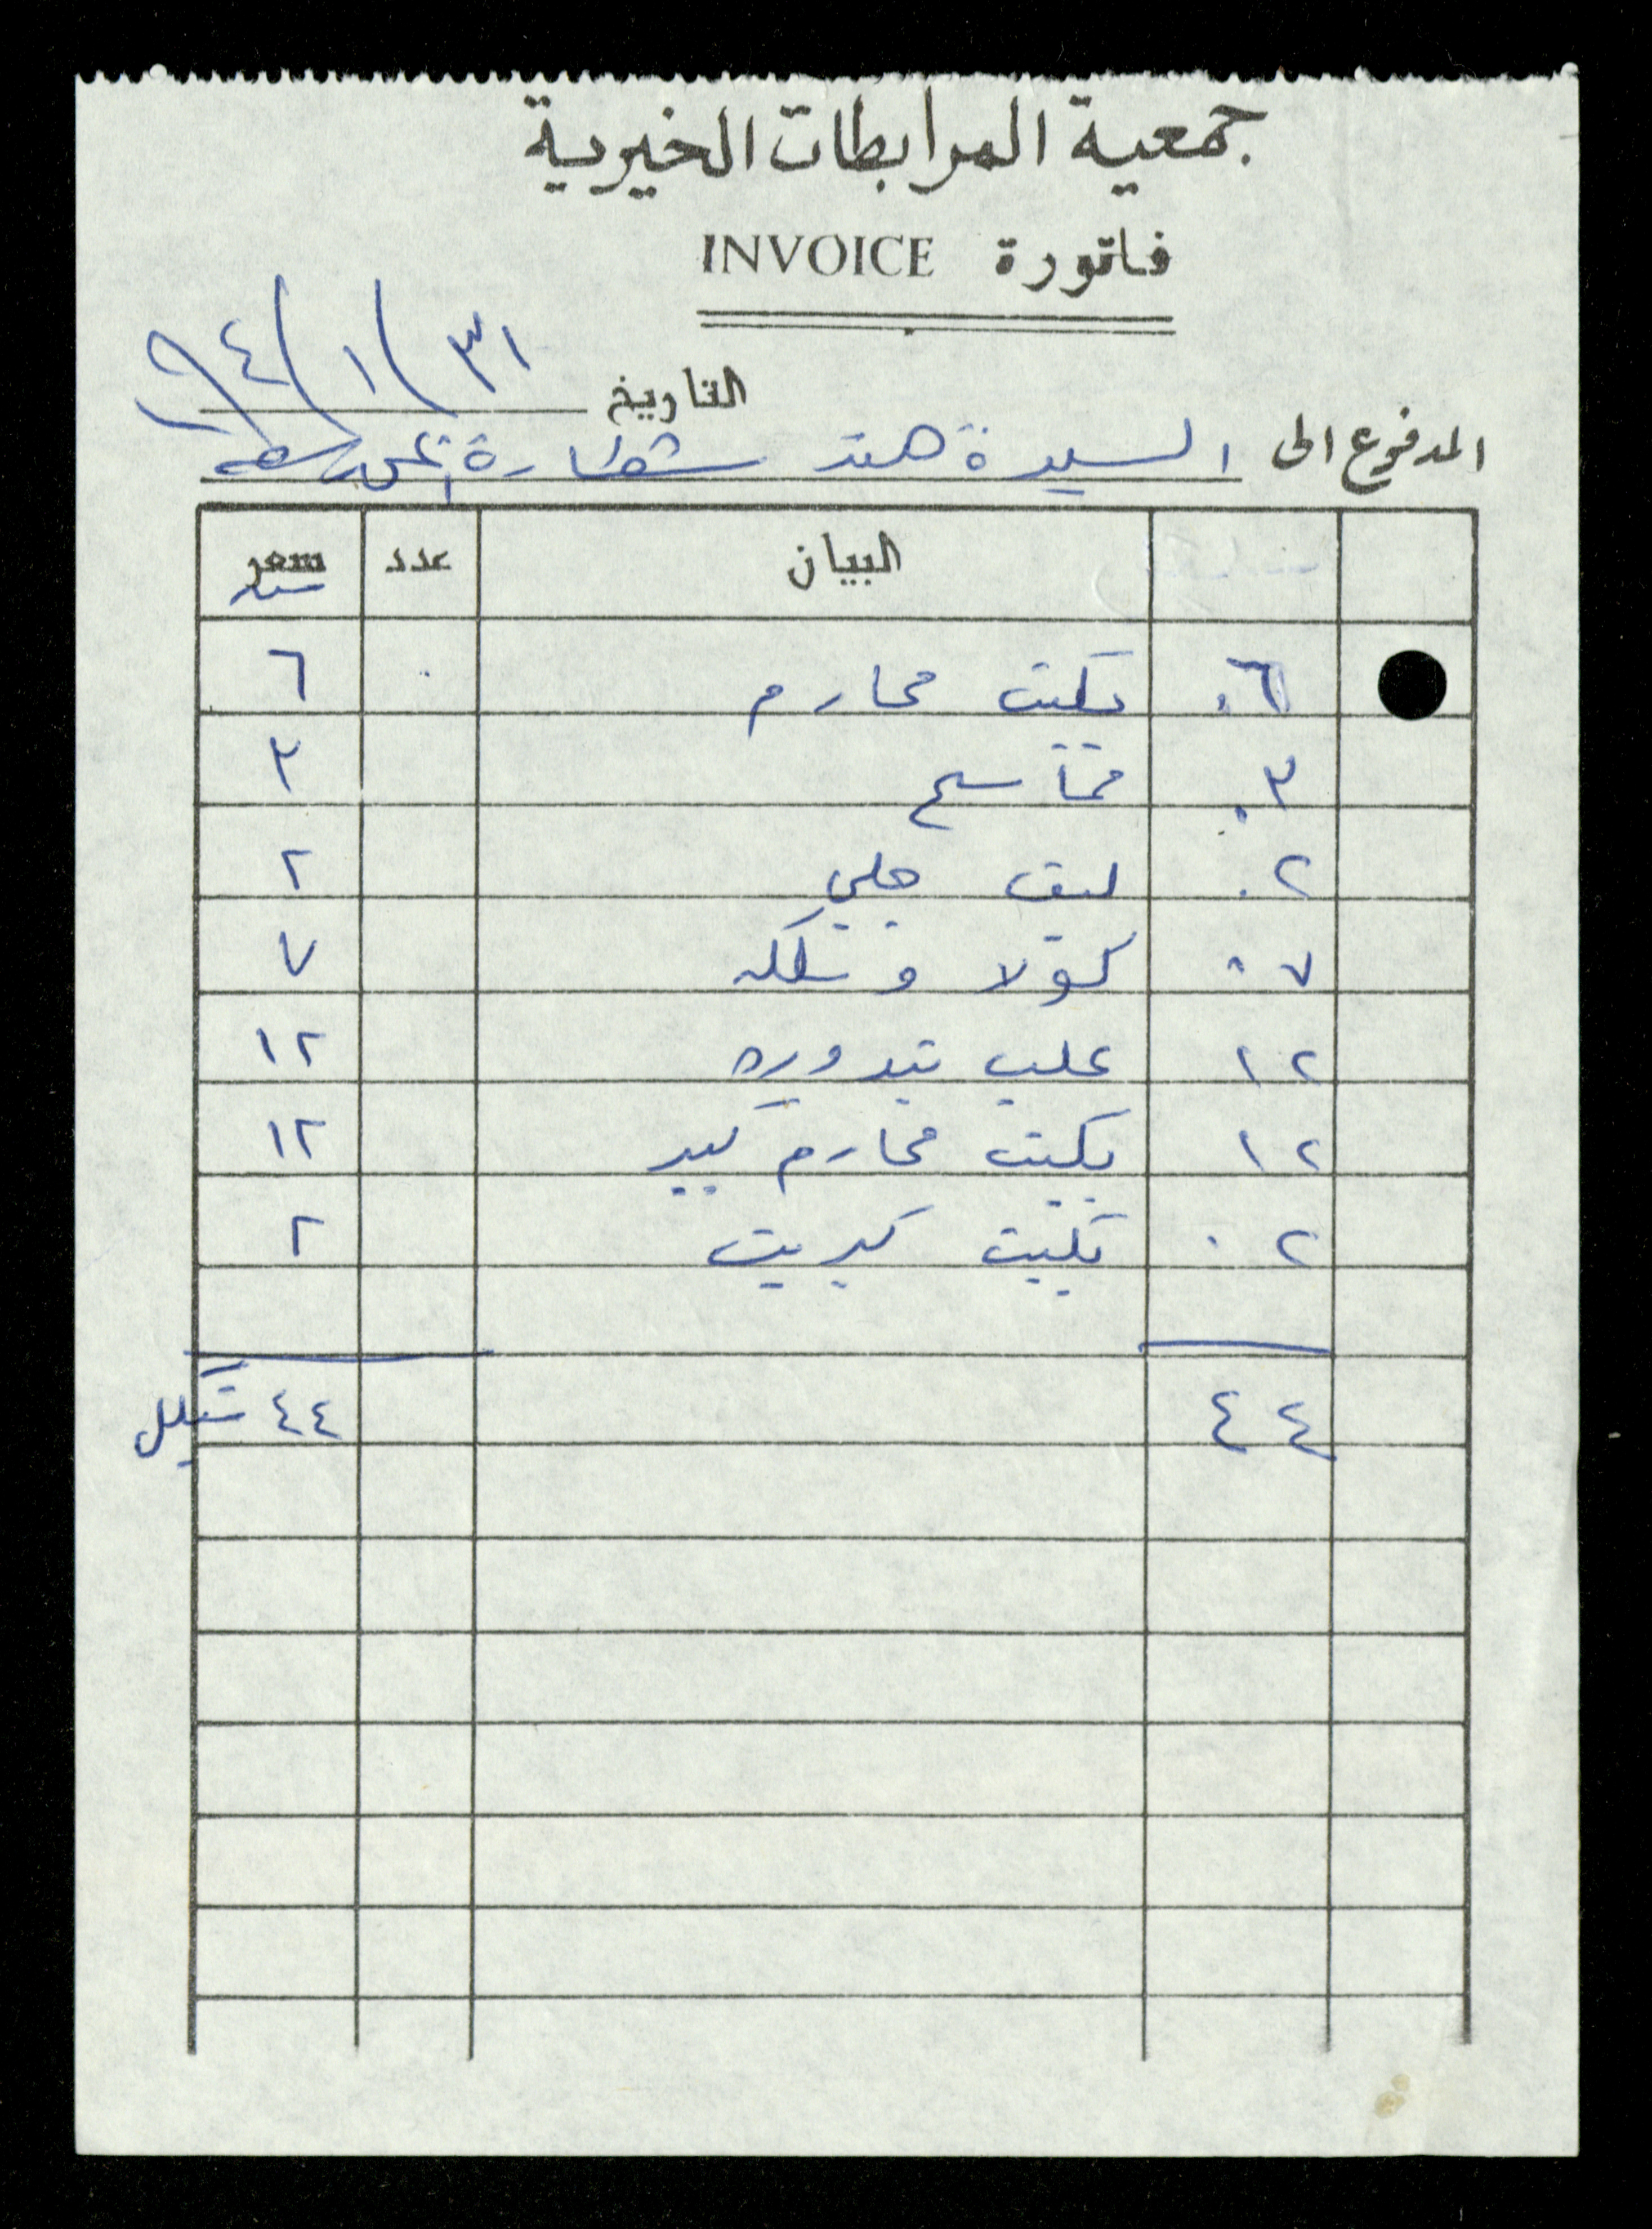 جمعية المرابطات الخيرية
فاتورة INVOICE
التاريخ ٣١/١/٩٤
المدفوع الى السيدة هند
البيان عدد سعر
٦٠ بكيت محارم ٦
٣٠ مماسح ٣
٢٠ ليف جلي ٢
٧٠ كولا و ٧
١٢ علب بندوره ١٢
١٢ بكيت محارم كبير ١٢
٢٠ بكيت كبريت ٢
٤٤ ٤٤ شيكل